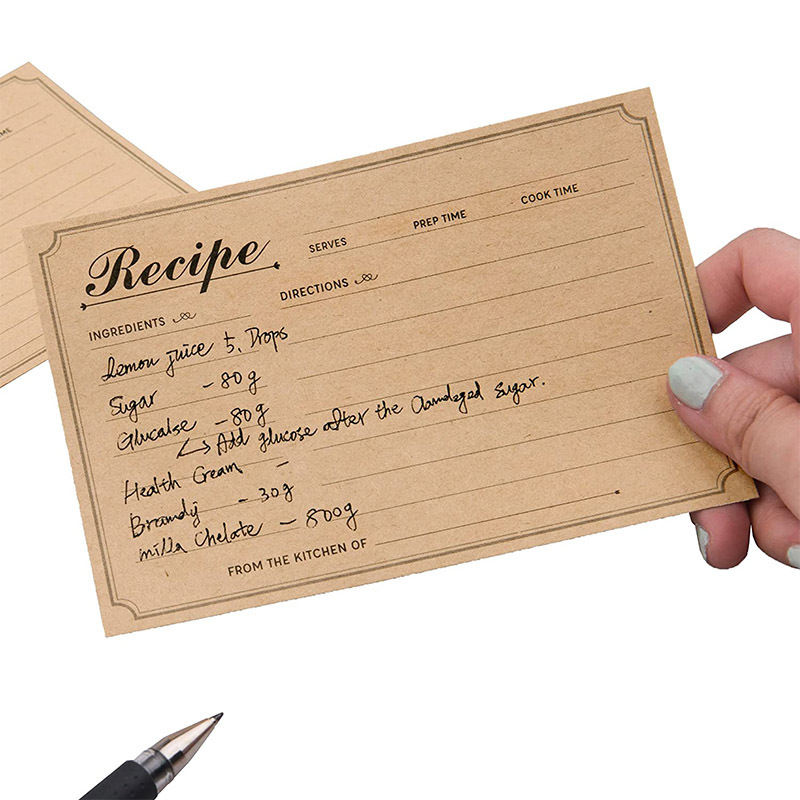 ME
Recipe
SERVES PREP TIME COOK TIME
INGREDIENTS DIRECTIONS
Lemon juice 5. Drops
Sugar - 80g
Glucalse - 80g
Add glucose after the Damdeged Sugar.
Health Cream -
Bramdy - 30g
milla Chelate - 800g
FROM THE KITCHEN OF